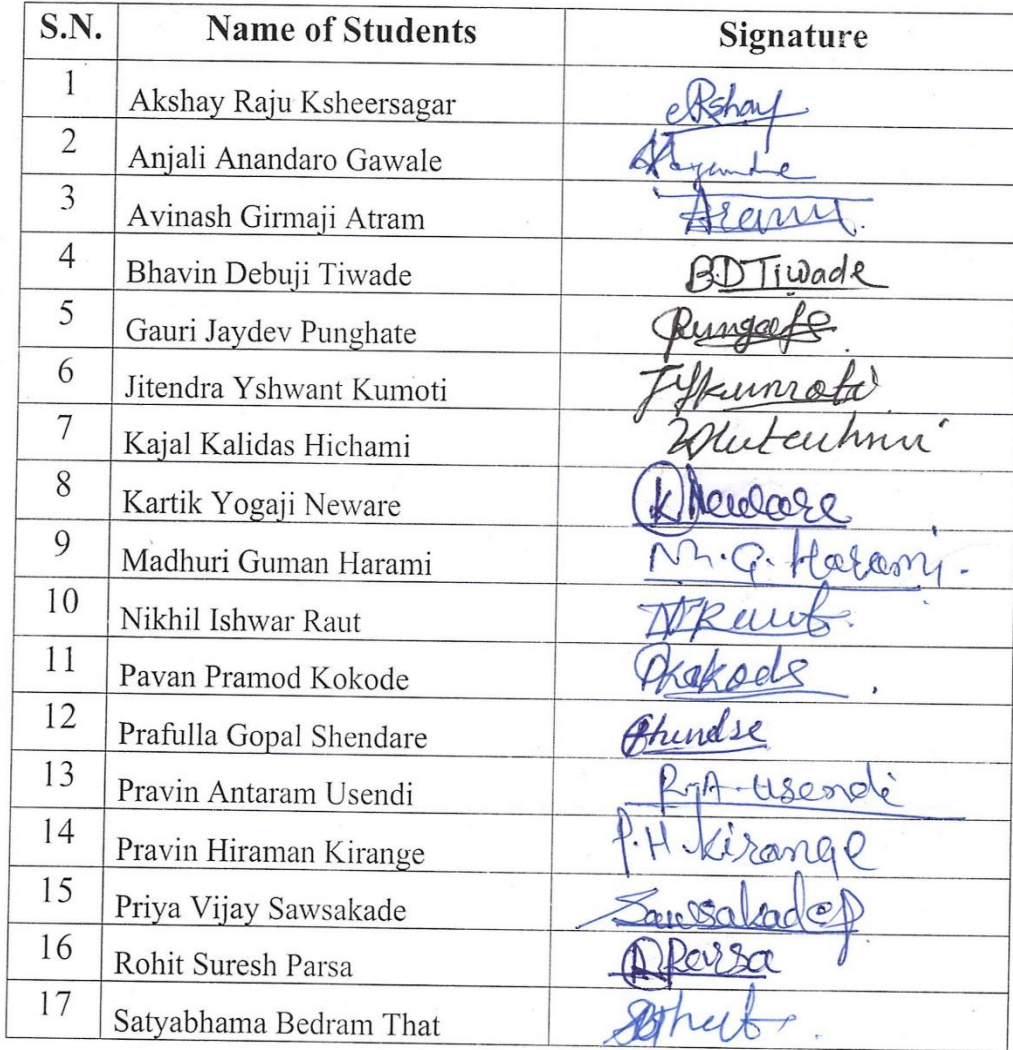 S.N. Name of Students Signature
1 Akshay Raju Ksheersagar Akshay
2 Anjali Anandaro Gawale
3 Avinash Girmaji Atram
4 Bhavin Debuji Tiwade B.D Tiwade
5 Gauri Jaydev Punghate
6 Jitendra Yshwant Kumoti
7 Kajal Kalidas Hichami
8 Kartik Yogaji Neware K Neware
9 Madhuri Guman Harami M.G. Harami.
10 Nikhil Ishwar Raut
11 Pavan Pramod Kokode
12 Prafulla Gopal Shendare
13 Pravin Antaram Usendi P.A. Usendi
14 Pravin Hiraman Kirange P.H. Kirange
15 Priya Vijay Sawsakade Sawsakade
16 Rohit Suresh Parsa
17 Satyabhama Bedram That